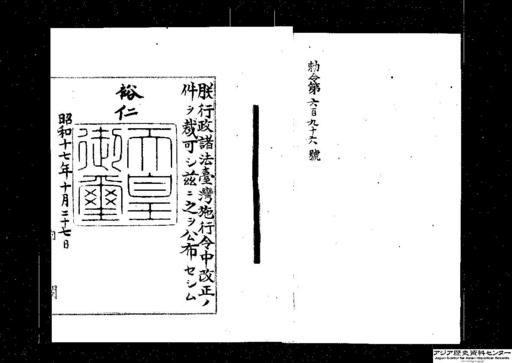 勅令第六百九十六號
朕行政諸法臺灣施行令中改正ノ
件ヲ裁可シ茲ニ之ヲ公布セシム
裕仁
天皇
御璽
昭和十七年十月二十七日
内閣
アジア歴史資料センター
Japan Center for Asian Historical Records